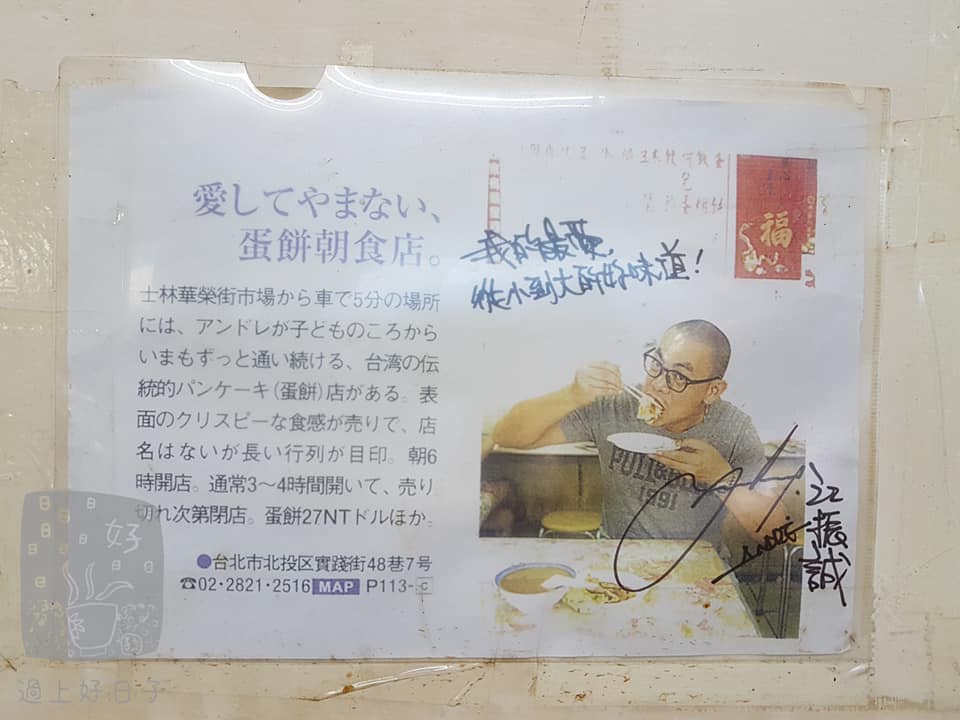 愛してやまない、
蛋餅朝食店。
士林華榮街市場から車で5分の場所
には、アンドレが子どものころから
いまもずっと通い続ける、台湾の伝
統的パンケーキ(蛋餅)店がある。表
面のクリスピーな食感が売りで、店
名はないが長い行列が目印。朝6
時開店。通常3〜4時間開いて、売り
切れ次第閉店。蛋餅27NTドルほか。
●台北市北投区實踐街48巷7号
☎02・2821・2516 MAP P113-C
我的最愛,
從小到大的好味道!
福
1991
江振誠
好
日日
日日日
日
日
過上好日子